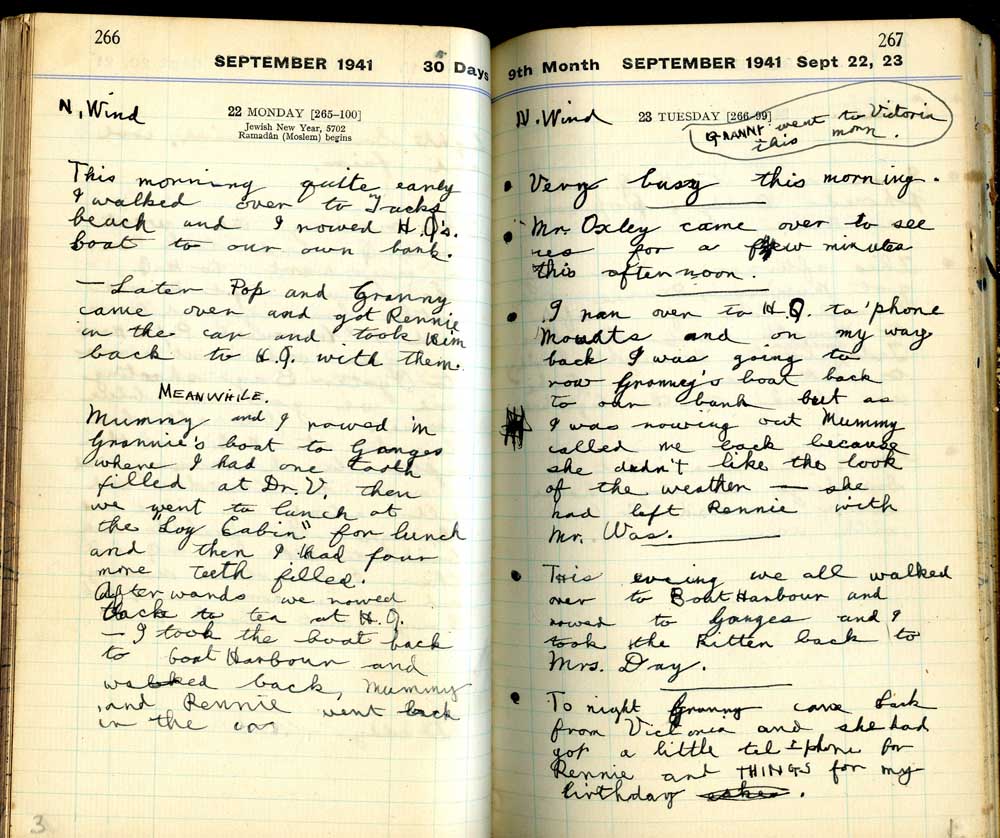 266
SEPTEMBER 1941 30 Days
N. Wind
22 MONDAY [265–100]
Jewish New Year, 5702
Ramadân (Moslem) begins
This morning quite early
I walked over to Jacks
beach and I rowed H.Q's.
boat to our own bank.
— Later Pop and Granny
came over and got Rennie
in the car and took him
back to H.Q. with them.
MEANWHILE.
Mummy and I rowed in
Grannie's boat to Ganges
where I had one tooth
filled at Dr. V. then
we went to lunch at
the "Log Cabin" for lunch
and then I had four
more teeth filled.
Afterwards we rowed
back to tea at H.Q.
— I took the boat back
to boat Harbour and
walked back, Mummy
and Rennie went back
in the car
3
267
9th Month SEPTEMBER 1941 Sept 22, 23
N. Wind
23 TUESDAY [266–99]
GRANNY went to Victoria
this morn.
Very busy this morning.
Mr. Oxley came over to see
us for a few minutes
this afternoon.
I ran over to H.Q. to 'phone
Mouats and on my way
back I was going to
row Granney's boat back
to our bank but as
I was rowing out Mummy
called me back because
she didn't like the look
of the weather — she
had left Rennie with
Mr. Was.
This evening we all walked
over to Boat Harbour and
rowed to Ganges and I
took the Kitten back to
Mrs. Day.
To night Granny came back
from Victoria and she had
got a little telephone for
Rennie and THINGS for my
birthday .